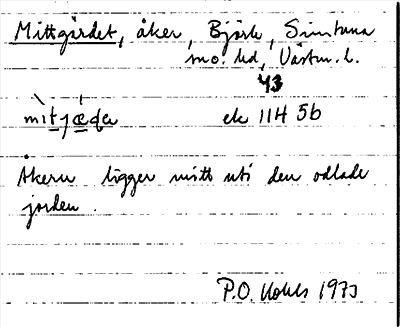 Mittgärdet, åker, Björk, Simtuna
sn o. hd, Västm. l.
43
mìtjæ̀ḍa ek 11H 5b
Åkern ligger mitt uti den odlade
jorden.
P.O. 1973